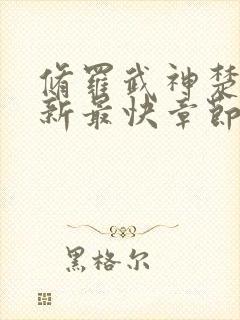 脩羅武神楚
新最快章節
黑格尔